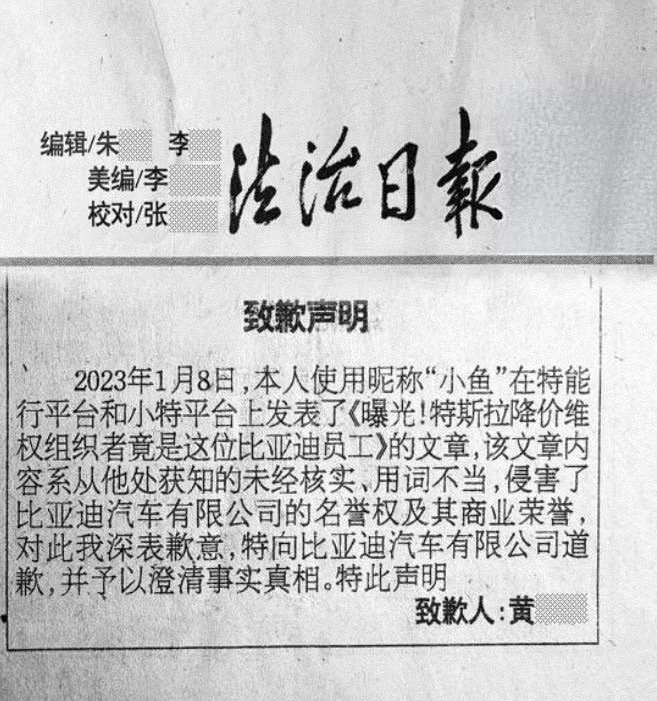 编辑/朱 李
美编/李
校对/张
法治日報
致歉声明
2023年1月8日,本人使用昵称“小鱼”在特能
行平台和小特平台上发表了《曝光!特斯拉降价维
权组织者竟是这位比亚迪员工》的文章,该文章内
容系从他处获知的未经核实、用词不当,侵害了
比亚迪汽车有限公司的名誉权及其商业荣誉,
对此我深表歉意,特向比亚迪汽车有限公司道
歉,并予以澄清事实真相。特此声明
致歉人:黄